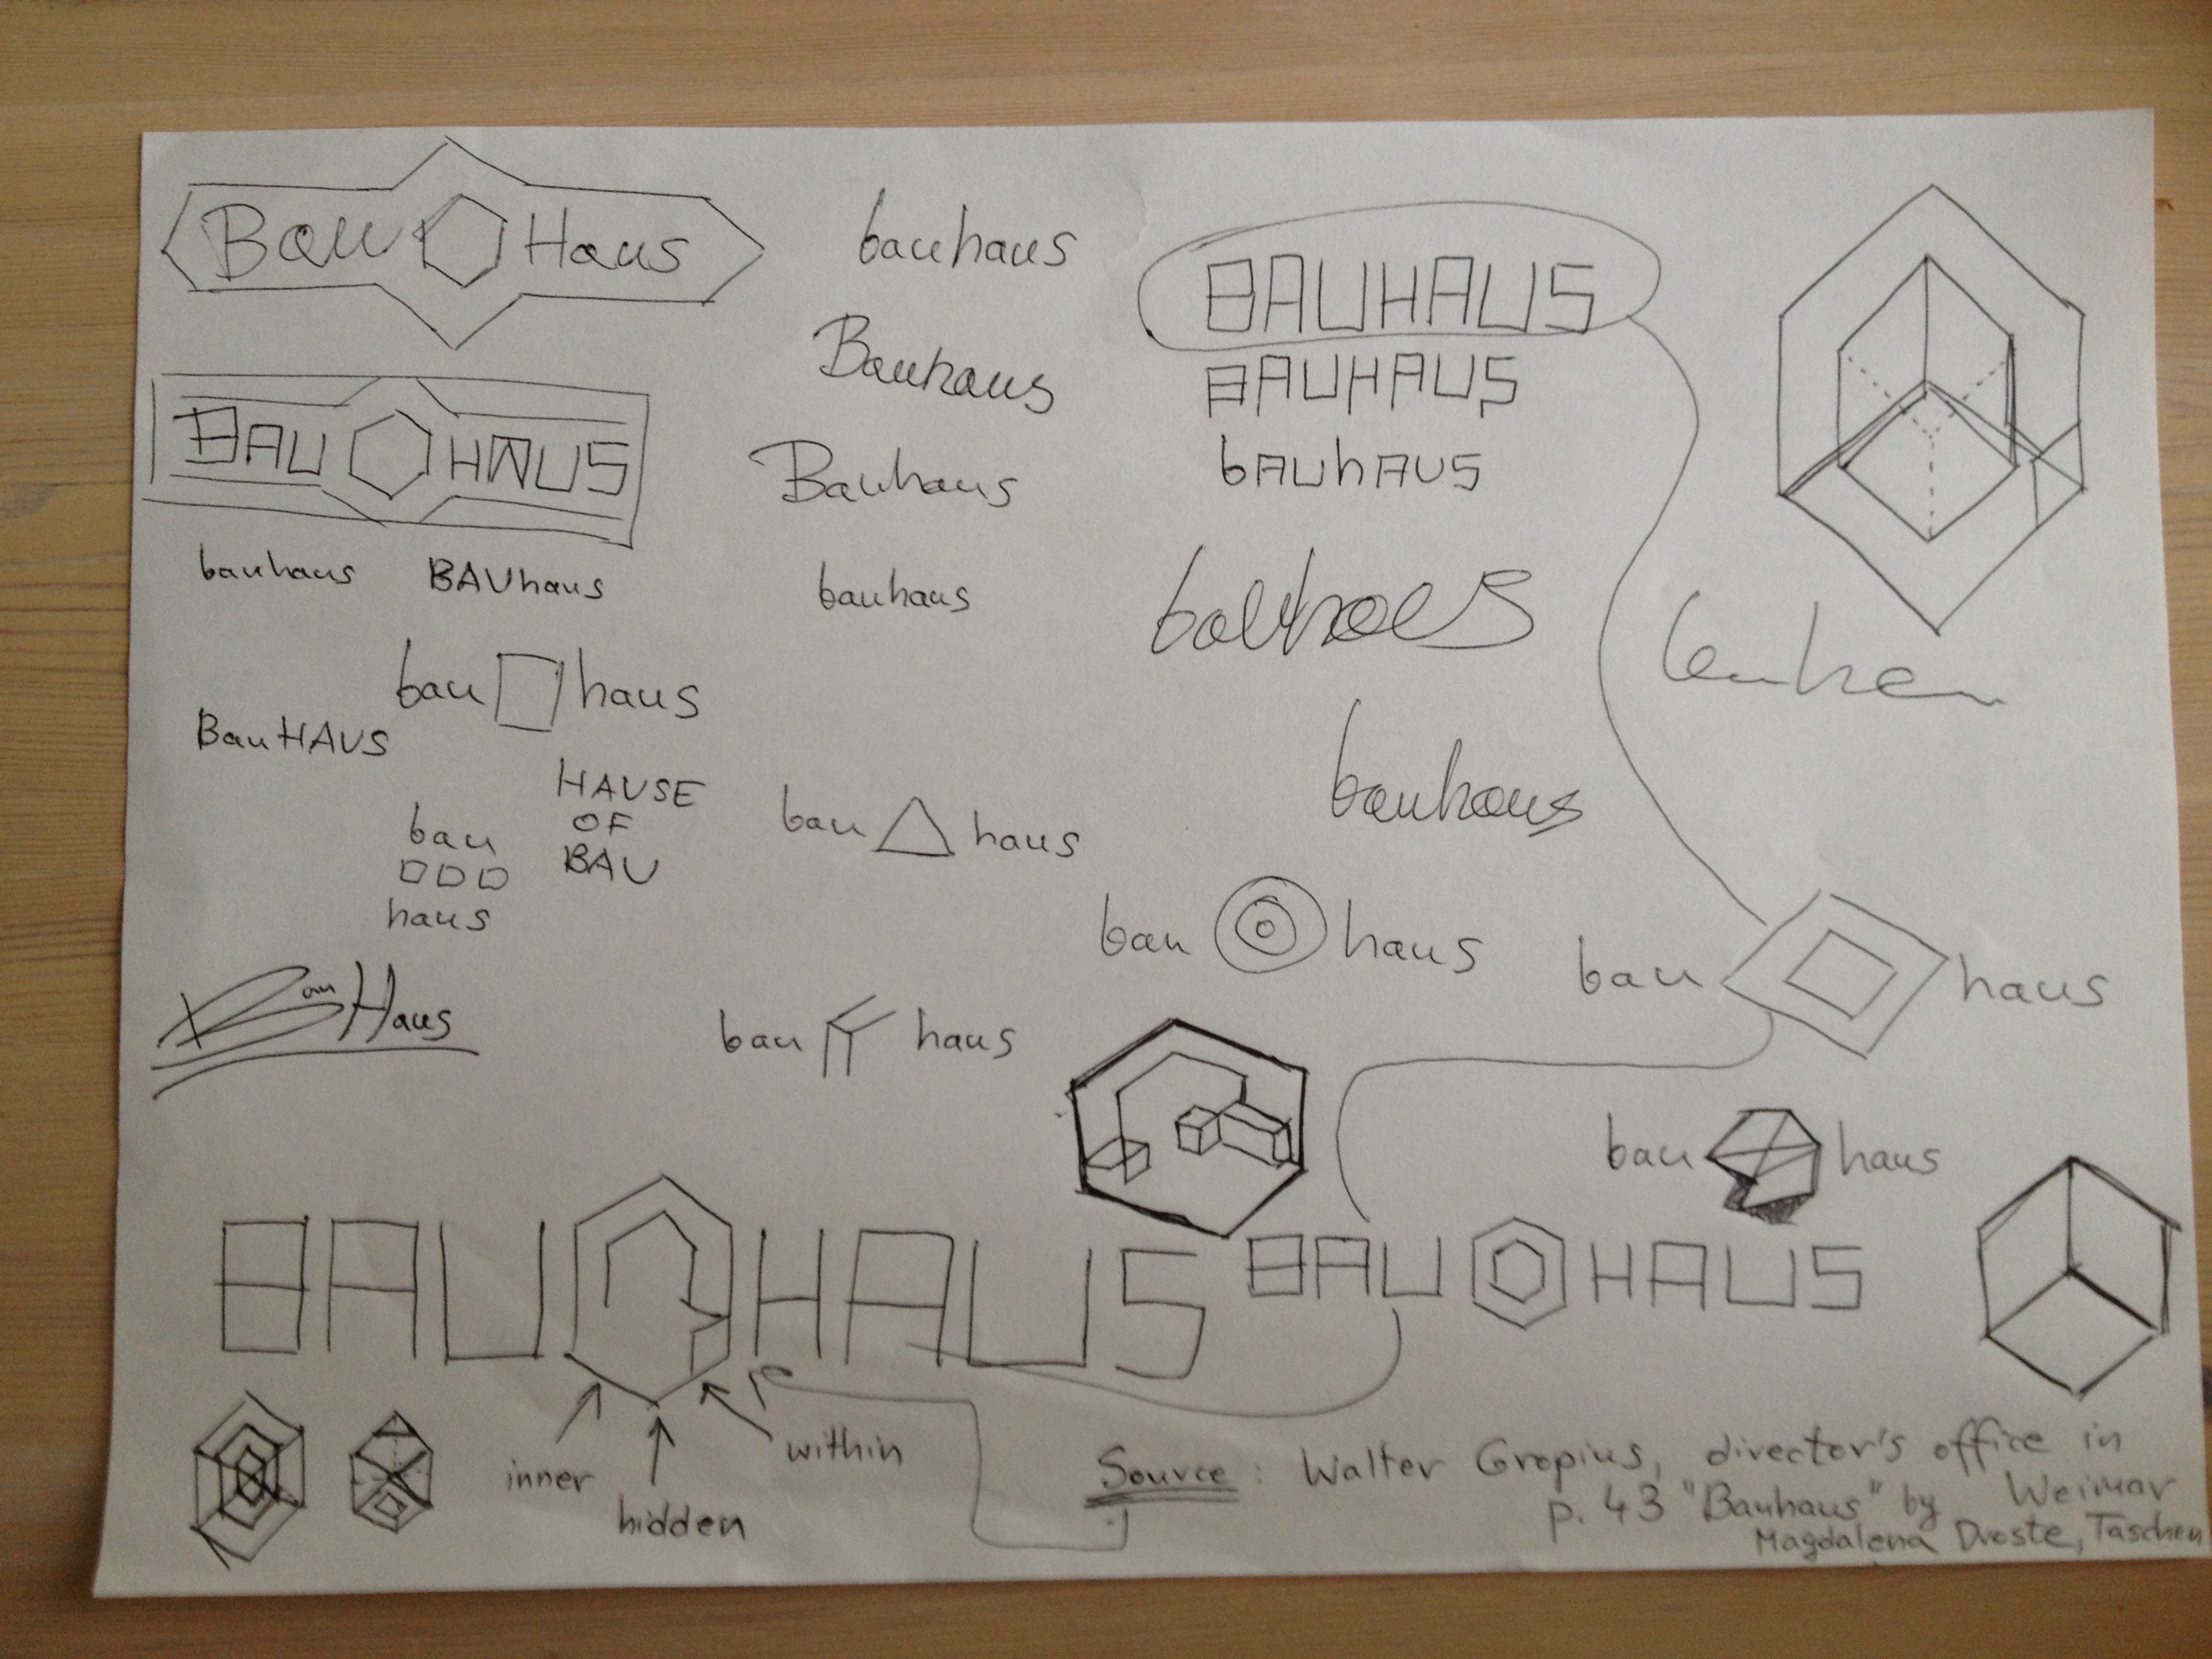 Bau Haus
bauhaus
BAUHAUS
Bauhaus
BAUHAUS
BAU HAUS
Bauhaus
bAUhAUS
bauhaus BAUhaus
bauhaus
bauhaus
bau haus
BauHAUS
bauhaus
HAUSE
OF
BAU
bau
haus
bau haus
bau haus
bau haus
Bau Haus
bau haus
bau haus
BAU HAUS
BAU HAUS
inner
hidden
within
Source: Walter Gropius, director's office in
Weimar
p. 43 "Bauhaus" by
Magdalena Droste, Taschen